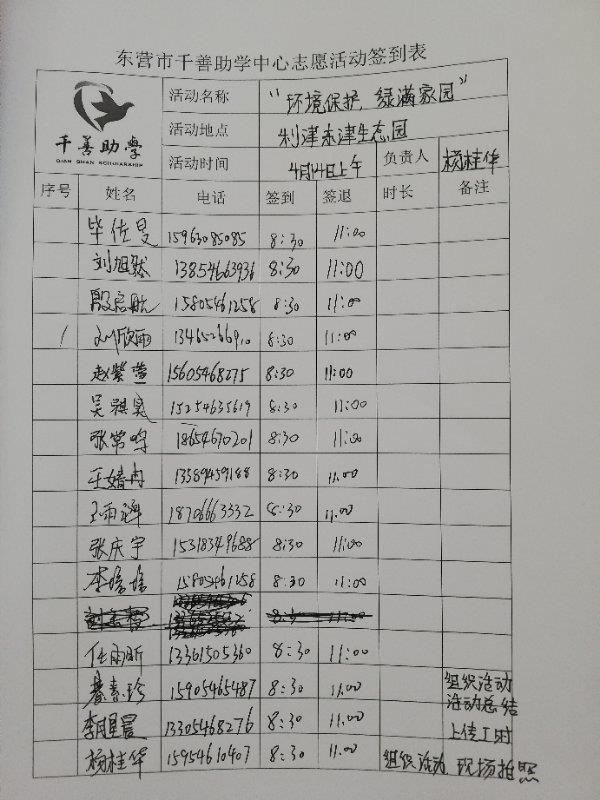 东营市千善助学中心志愿活动签到表
千善助学
QIAN SHAN SCHOLARSHIP
活动名称 “环境保护, 绿满家园”
活动地点 利津东津生态园
活动时间 4月14日上午 负责人 杨桂华
序号 姓名 电话 签到 签退 时长 备注
毕佐旻 15963085085 8:30 11:00
刘旭然 13854663936 8:30 11:00
殷启航 15805461258 8:30 11:00
刘欣雨 13465266910 8:30 11:00
赵紫萱 15605468275 8:30 11:00
吴祺昊 15254635619 8:30 11:00
张常鸣 18654670201 8:30 11:00
王婧冉 13589459188 8:30 11:00
王雨泽 18706663332 8:30 11:00
张庆宇 15318349688 8:30 11:00
李瑞瑞 15805461258 8:30 11:00
任雨昕 13361505360 8:30 11:00
綦素珍 15905465487 8:30 11:00 组织活动
活动总结
李明星晨 13305468276 8:30 11:00 上传工时
杨桂华 15954610407 8:30 11:00 组织活动 现场拍照